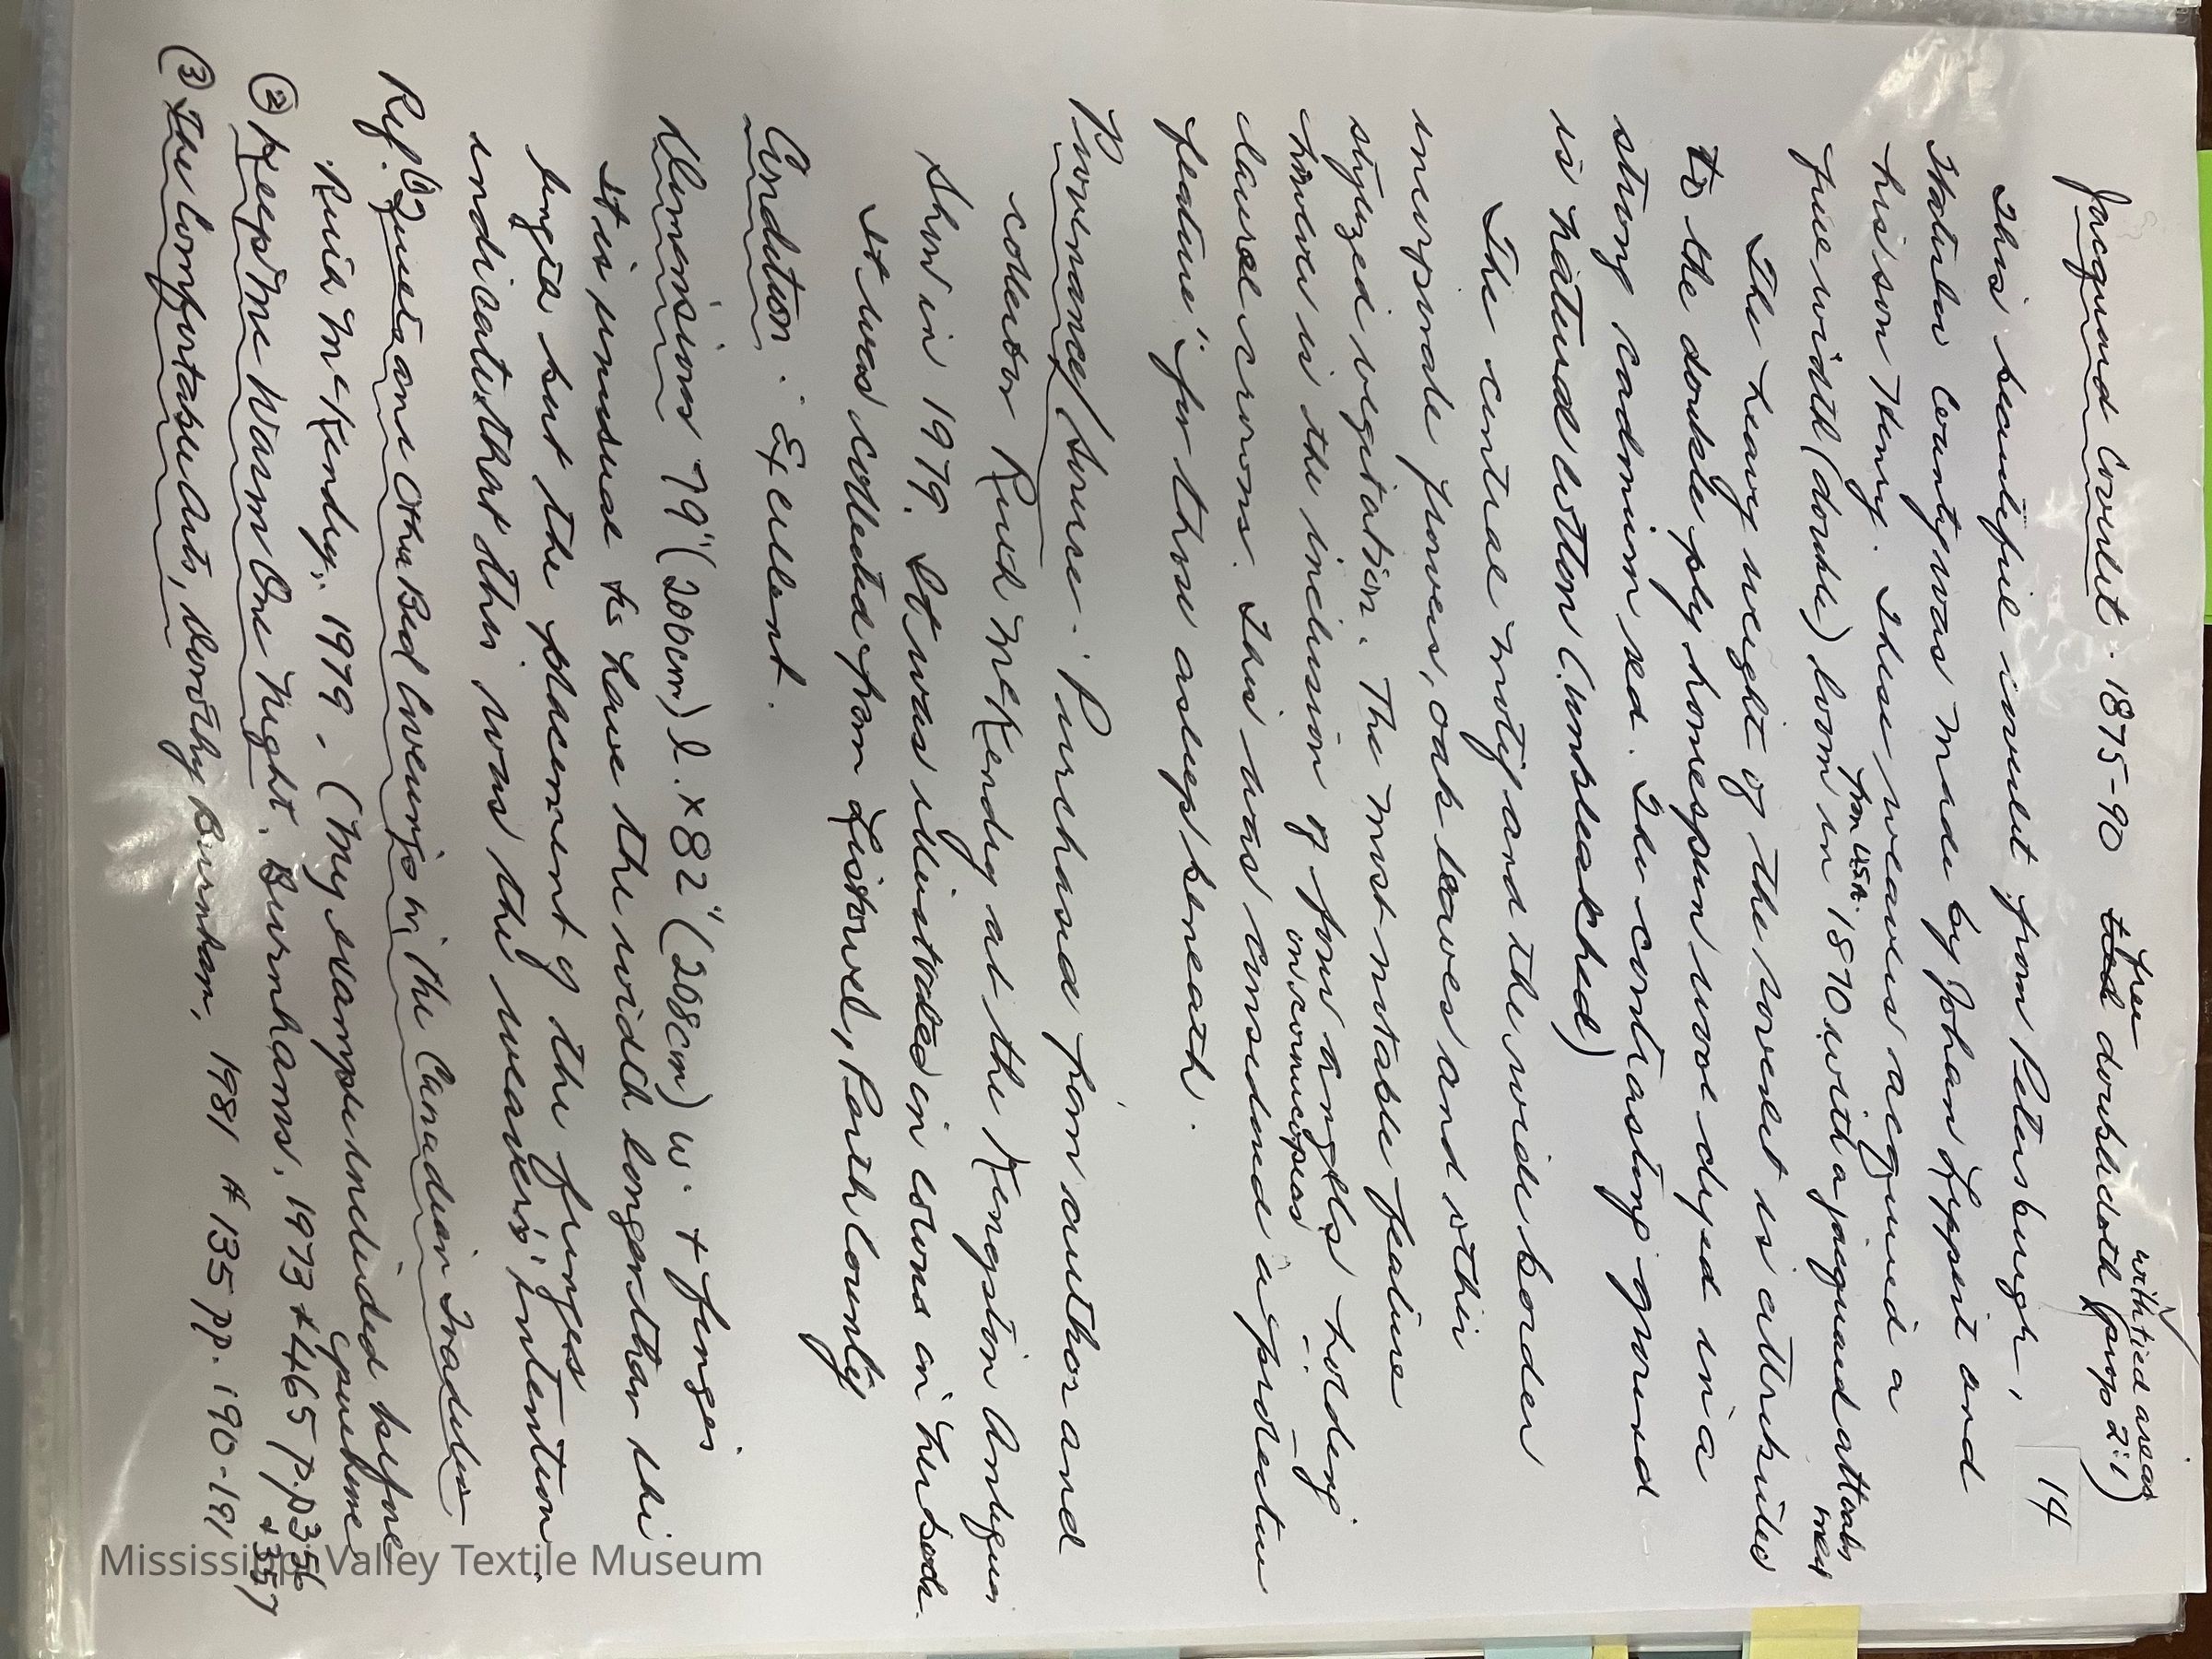 14
Jacquard Coverlet. 1875-90 tied free doublecloth (prop 2:1) with tied areas
This beautiful coverlet from Petersburgh,
Waterloo County was made by Johan Lippert and
his son Henry. These weavers acquired a
full width (double) loom from USA. in 1870 with a jacquard attachment
The heavy weight of the coverlet is attributed
to the double ply homespun wool dyed in a
strong cadmium red. The contrasting ground
is natural cotton (unbleached)
The central motif and the wide border
incorporate flowers, oak leaves and other
stylized vegetation. The most notable feature
however is the inclusion of four angels holding
on cornucopias
laurel crowns. This was considered a "protective
feature" for those asleep beneath.
Provenance/Source. Purchased from author and
collector Ruth McKendry at the Kingston Antiques
Show in 1979. It was illustrated in colour in her book.
It was collected from Listowel, Perth County
Condition. Excellent.
Dimensions 79" (200cm) l. x 82" (208cm) w. + fringes
It is unusual to have the width longer than the
length but the placement of the fringes
indicates that this was the weavers' intention.
Ref. ① Quilts and Other Bed Coverings in the Canadian Tradition
Ruth McKendry, 1979. (My example included before purchase
② Keep Me Warm One Night. Burnhams. 1973 #465 p.p 356 + 357)
③ The Comfortable Arts, Dorothy Burnham, 1981 #135 pp. 190-191
Mississippi Valley Textile Museum